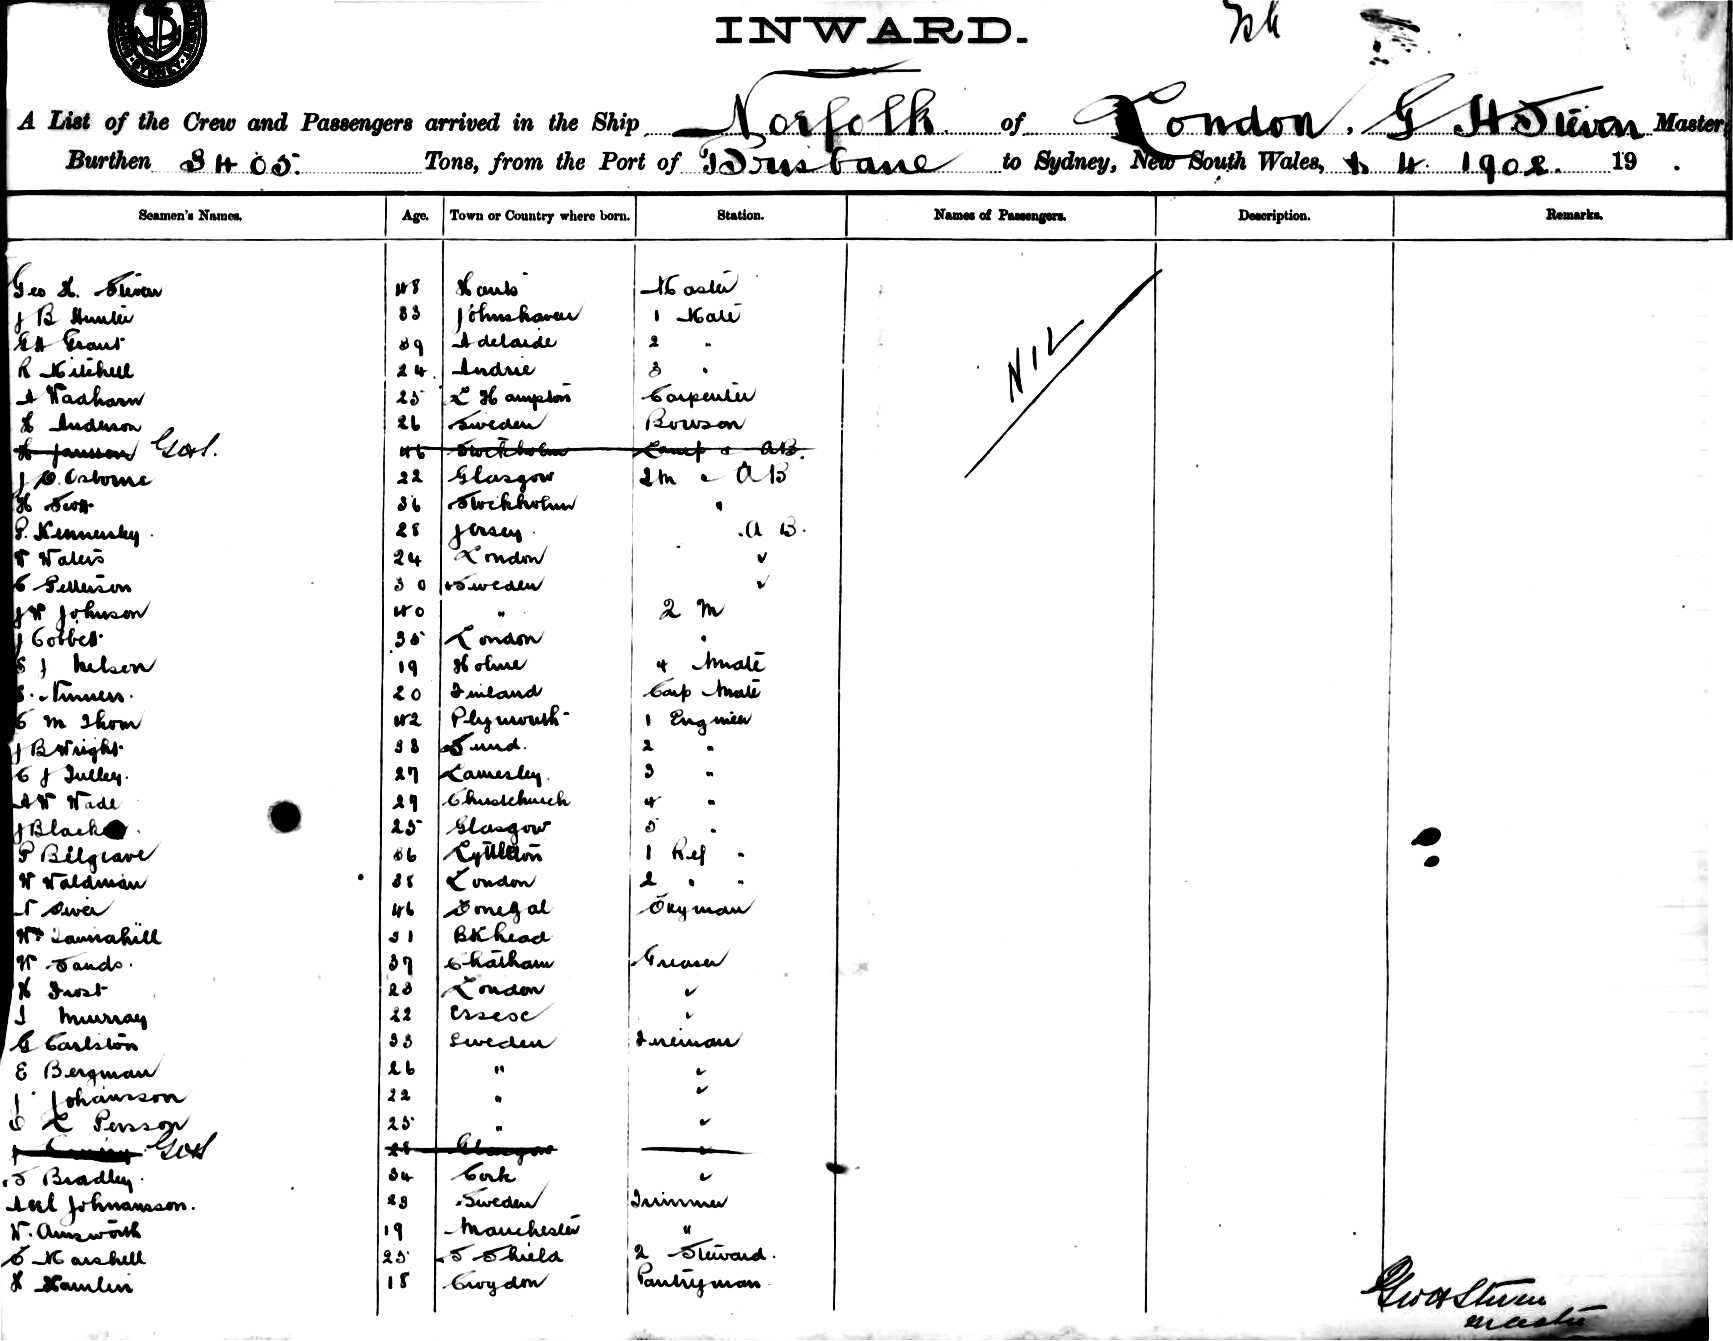 INWARD.
A List of the Crew and Passengers arrived in the Ship Norfolk of London, G H Steven Master,
Burthen 3405. Tons, from the Port of Brisbane to Sydney, New South Wales, 4 1902. 19 .
Seamen's Names. Age. Town or Country where born. Station. Names of Passengers. Description. Remarks.
Geo H. Steven 48 Hants Master
J B Hunter 33 Johnshaven 1 Mate
Grant 39 Adelaide 2 "
R Mitchell 24 Airdrie 3 "
NIL
A Wadham 25 L Hampton Carpenter
H Anderson 26 Sweden Bowson
H Jansson Gaol. 46 Stockholm Lamp & AB.
J O. Osborne 22 Glasgow 2M & AB
H Scott 36 Stockholm "
P. Kennersley 28 Jersey. A B.
W Waters 24 London ✓
C Petterson 30 Sweden ✓
J W Johnson 40 " 2 M
J Cobbett 35 London "
S J Nelson 19 Holme 4 Mate
20 Finland Carp Mate
C M Thom 42 Plymouth 1 Engineer
J B Wright 38 Sund. 2 "
C J Tulley. 27 Lamesley. 3 "
A W Wade 29 Christchurch 4 "
J Black 25 Glasgow 5 "
P Bilgrave 36 Lyttleton 1 Ref "
W Waldman 38 London 2 " "
46 Donegal Dkyman
Wm Tannahill 31 BKhead
W Sands. 37 Chatham Greaser
H Frost 23 London ✓
J Murray 22 Essex ✓
G Carlston 33 Sweden Fireman
E Bergman 26 " ✓
J Johansson 22 " ✓
L Persson 25 " ✓
Gaol 28 Glasgow ✓
T Bradley. 34 Cork ✓
Axel Johnansson. 23 Sweden Trimmer
W. Ainsworth 19 Manchester "
C Marshell 25 S Shield 2 Steward.
H Hamlin 18 Croydon Pantryman
Geo H Steven
Master